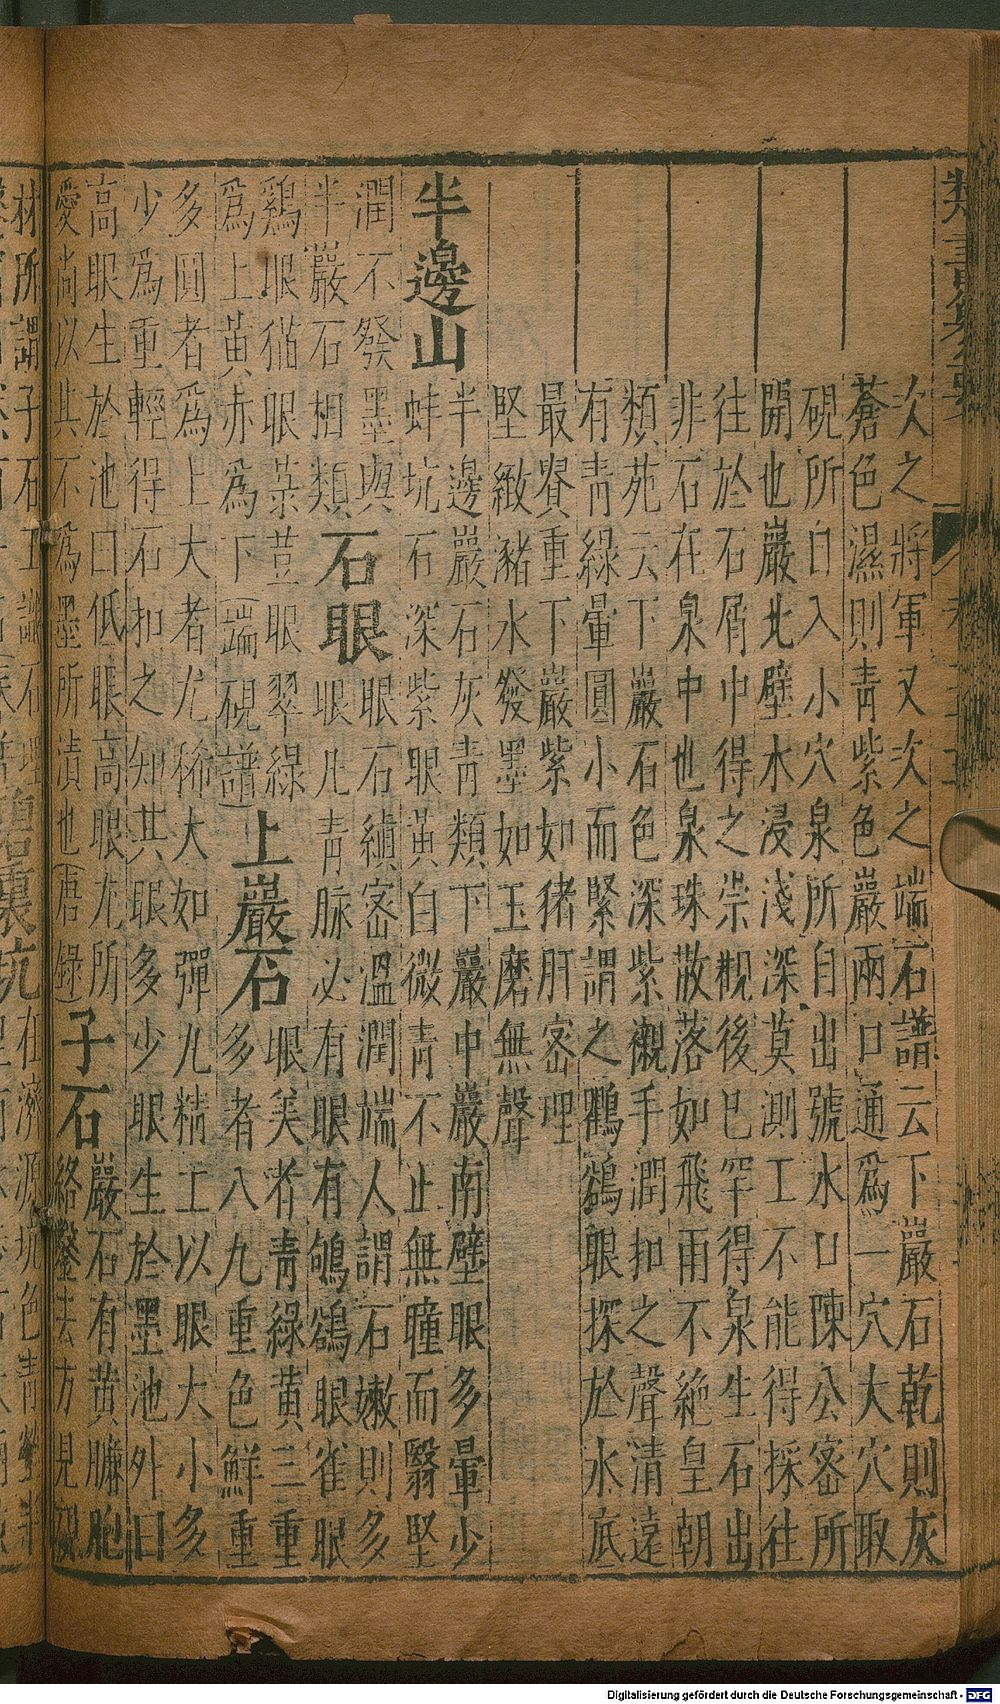 次之將軍又次之端石譜云下巖石乾則灰
蒼色濕則青紫色巖兩口通爲一穴大穴取
硯所自入小穴泉所自出號水口陳公密所
開也巖北壁水浸淺深莫測工不能得採往
往於石屑中得之崇觀後已罕得泉生石出
非石在泉中也泉珠散落如飛雨不絶皇朝
類苑云下巖石色深紫襯手潤扣之聲清遠
有青綠暈圓小而緊謂之鸜鵒眼探於水底
最貴重下巖紫如猪肝密理
堅緻豬水發墨如玉磨無聲
半邊山
半邊巖石灰青類下巖中巖南壁眼多暈少
蚌坑石深紫眼黃白微青不止無瞳而翳堅
潤不發墨與
半巖石相類
石眼
眼石縝密溫潤端人謂石嫩則多
眼凡青脉必有眼有鴝鵒眼雀眼
鷄眼猫眼菉荳眼翠綠
爲上黃赤爲下(端硯譜)
上巖石
眼美者青綠黃三重
多者八九重色鮮重
多圓者爲上大者尤稀大如彈丸精工以眼大小多
少爲重輕得石扣之知其眼多少眼生於墨池外曰
高眼生於池曰低眼高眼尤所
愛尚以其不爲墨所漬也(唐錄)
子石
巖石有黄臁胞
絡鑿去方見硯
材所謂子石工